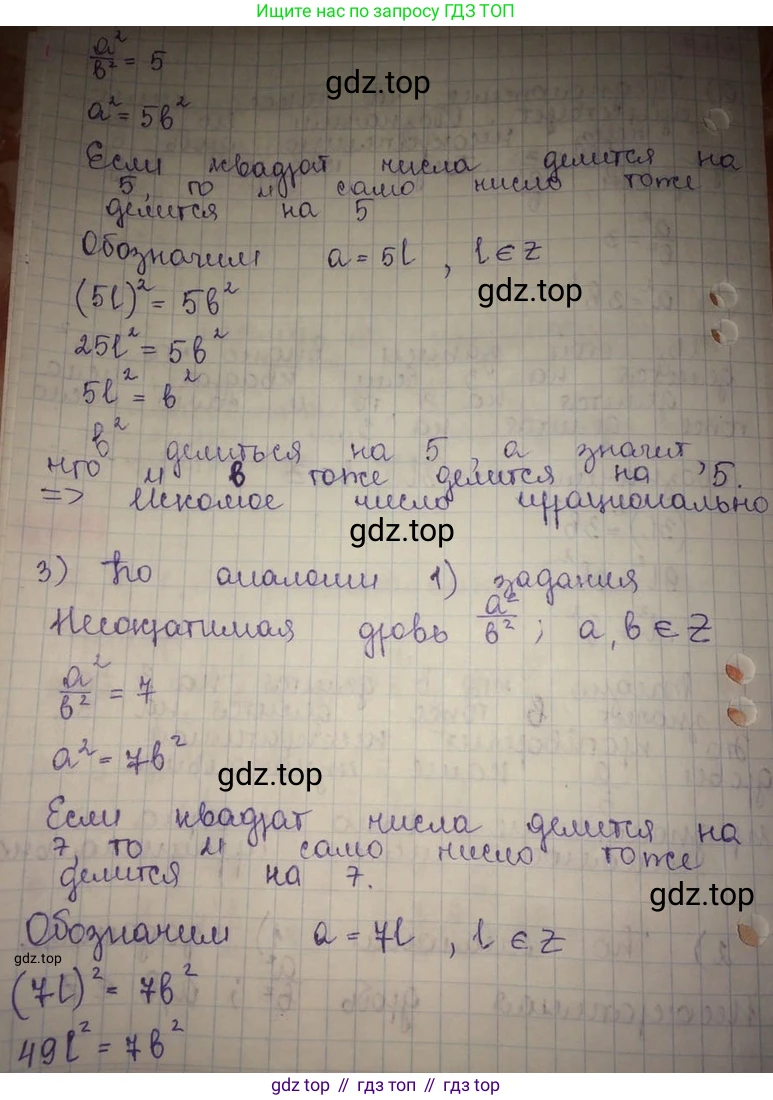 Ищите нас по запросу ГДЗ ТОП
a²/в² = 5
gdz.top
a² = 5в²
Если квадрат числа делится на
5, то и само число тоже
делится на 5
Обозначим a = 5l, l ∈ Z
(5l)² = 5в²
gdz.top
25l² = 5в²
5l² = в²
в² делиться на 5, а значит,
что и в тоже делится на 5.
=> Искомое число иррационально
gdz.top
3) По аналогии 1) задания
Несократимая дробь a²/в²; a, в ∈ Z
a²/в² = 7
a² = 7в²
gdz.top
Если квадрат числа делится на
7, то и само число тоже
делится на 7.
gdz.top
Обозначим a = 7l, l ∈ Z
gdz.top
gdz.top
(7l)² = 7в²
49l² = 7в²
gdz top // гдз топ // gdz top